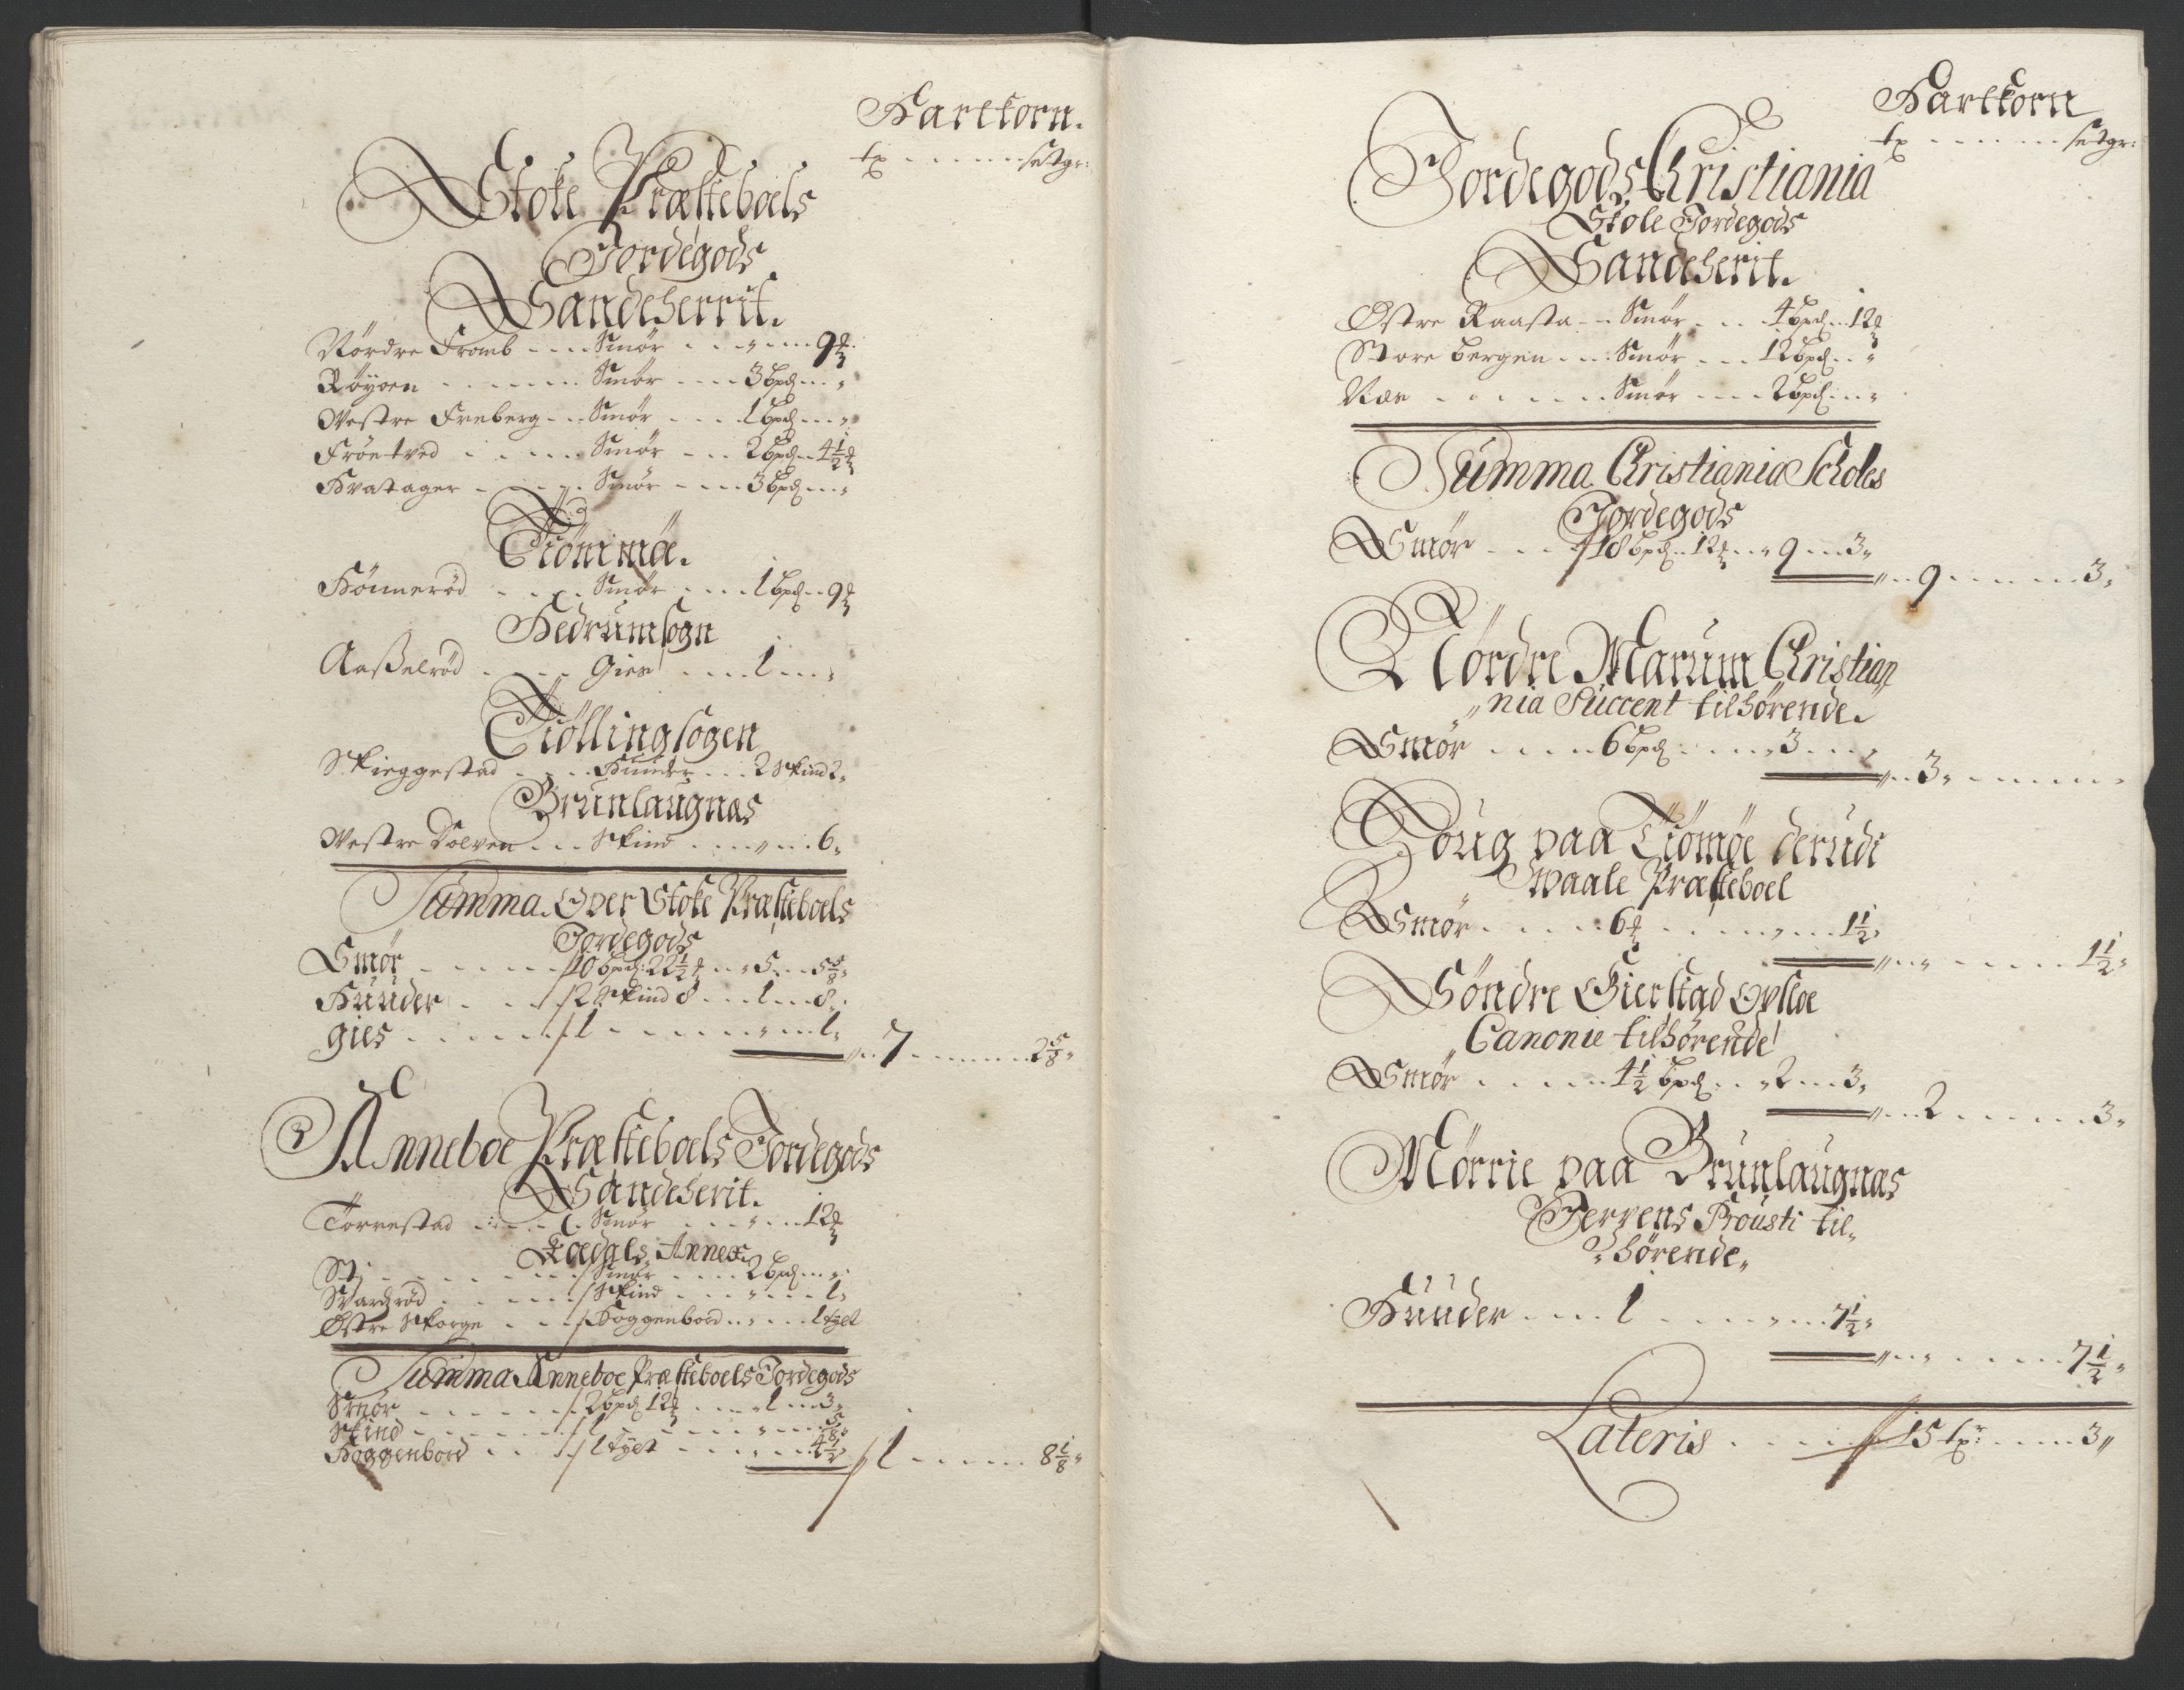 Hartkorn.
tr ... setgr:
Stoke Præsteboels
Jordegods
Sandeherrit.
Nørdre Fromb ... Smør ... " ... 9 ℔
Røyoen ... Smør ... 3 bpd ... "
Westre Freberg ... Smør ... 1 bpd ... "
Frøntved ... Smør ... 2 bpd .. 4½ ℔
Hvatager ... Smør ... 3 bpd ... "
Tiømmøe.
Hønnerød ... Smør ... 1 bpd .. 9 ℔
Hedrum sogn
Aasselrød ... Gies ... 1 ... "
Tiølling sogen
Skieggestad ... Huuder ... 2 Skind 2 "
Brunlaugnæs
Westre Dolven ... Skind ... " ... 6 "
Summa Over Stoke Præsteboels
Jordegods
Smør ... 10 bpd: 22½ ℔ .. " 5 ... 5⅝ "
Huuder ... 2 Skind 8 ... 1 ... 8 "
gies ... 1 ... " ... 1 "
" .. 7 ... 2⅝ "
Anneboe Præsteboels Jordegods
Sandeherit.
Torrestad ... Smør ... " ... 12 ℔
Fædals Annex
Sti ... Smør ... 2 bpd ... "
Svartzrød ... Skind ... " ... 1 "
Østre Skorge ... Hoggenbord ... " ... 1 tylt
Summa Anneboe Præsteboels Jordegods
Smør ... 2 bpd 12 ℔ ... 1 ... 3 "
Skind ... 1 ... " ... ⅝ "
Hoggenbord ... 1 tylt ... " ... 4½ "
1 ... 8⅛ "
Hartkorn
tr ... setgr:
Jordegods Christiania
Skole Jordegods
Sandeherit.
Østre Raasta ... Smør ... 4 bpd .. 12 ℔
Store bergen ... Smør ... 12 bpd .. "
Næs ... Smør ... 2 bpd ... "
Summa Christiania Scholes
Jordegods
Smør ... 18 bpd .. 12 ℔ .. " 9 ... 3 "
" .. 9 ... 3 "
Nørdre Marum Christian
"nia Succent tilhørende.
Smør ... 6 bpd ... " 3 ... "
" .. 3 " ... "
Houg paa Tiømøe derudi
Waale Præsteboel
Smør ... 6 ℔ ... " ... 1½ "
" .. " ... 1½ "
Søndre Gierstad Opsloe
Canonie tilhørende
Smør ... 4½ bpd .. " 2 ... 3 "
" ... 2 ... 3 "
Mørrie paa Brunlaugnæs
Herrens Prousti til "
" hørende "
Huuder ... 1 ... " ... 7½ "
" .. " ... 7½ "
Lateris ... 15 tr: ... 3 "